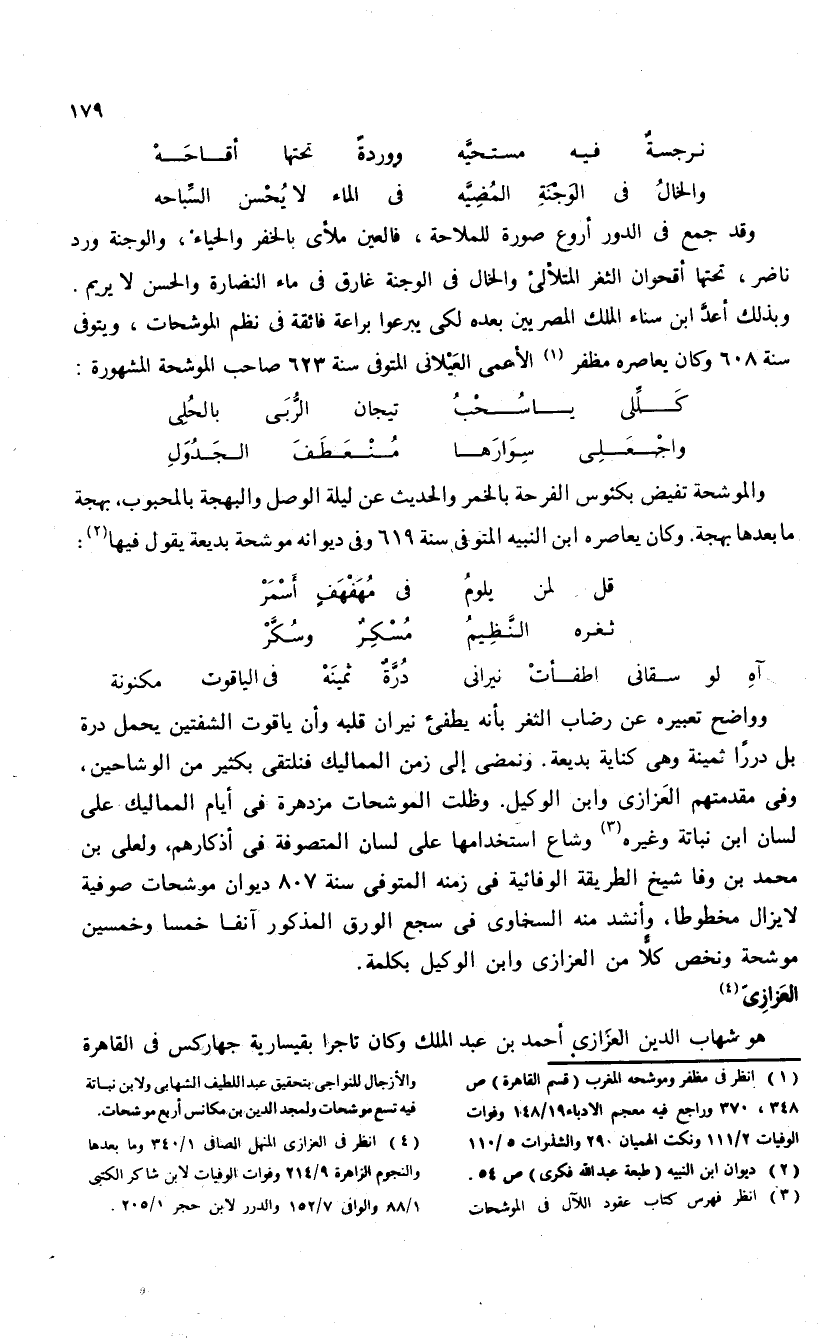 ١٧٩
نرجسةٌ فيه مستحيَّه ووردةٌ تحتها أقاحَهْ
والخالُ فى الوَجْنَةِ المُضِيَّه فى الماء لا يُحْسن السِّباحه
وقد جمع فى الدور أروع صورة للملاحة ، فالعين ملأى بالخفر والحياء ، والوجنة ورد
ناضر ، تحتها أقحوان الثغر المتلألئ والخال فى الوجنة غارق فى ماء النضارة والحسن لا يريم .
وبذلك أعدَّ ابن سناء الملك المصريين بعده لكى يبرعوا براعة فائقة فى نظم الموشحات ، ويتوفى
سنة ٦٠٨ وكان يعاصره مظفر (١) الأعمى العَيْلانى المتوفى سنة ٦٢٣ صاحب الموشحة المشهورة :
كَلِّلى ياسُحْبُ تيجان الرُّبَى بالحُلِى
واجْعَلِى سِوَارَها مُنْعَطَفَ الجَدْوَلِ
والموشحة تفيض بكئوس الفرحة بالخمر والحديث عن ليلة الوصل والبهجة بالمحبوب، بهجة
ما بعدها بهجة. وكان يعاصره ابن النبيه المتوفى سنة ٦١٩ وفى ديوانه موشحة بديعة يقول فيها(٢) :
قل لمن يلومُ فى مُهَفْهَفٍ أسْمَرْ
ثغره النَّظِيمُ مُسْكِرٌ وسُكَّرْ
آهِ لو سقانى اطفأتْ نيرانى دُرَّةٌ ثمينَهْ فى الياقوت مكنونة
وواضح تعبيره عن رضاب الثغر بأنه يطفئ نيران قلبه وأن ياقوت الشفتين يحمل درة
بل دررًا ثمينة وهى كناية بديعة. ونمضى إلى زمن المماليك فنلتقى بكثير من الوشاحين،
وفى مقدمتهم العَزازى وابن الوكيل. وظلت الموشحات مزدهرة فى أيام المماليك على
لسان ابن نباتة وغيره(٣) وشاع استخدامها على لسان المتصوفة فى أذكارهم، ولعلى بن
محمد بن وفا شيخ الطريقة الوفائية فى زمنه المتوفى سنة ٨٠٧ ديوان موشحات صوفية
لايزال مخطوطا، وأنشد منه السخاوى فى سجع الورق المذكور آنفا خمسا وخمسين
موشحة ونخص كلًّا من العزازى وابن الوكيل بكلمة.
العَزازِىّ(٤)
هو شهاب الدين العَزازى أحمد بن عبد الملك وكان تاجرا بقيسارية جهاركس فى القاهرة
(١) انظر فى مظفر وموشحه المغرب ( قسم القاهرة ) ص
٣٤٨ ، ٣٧٠ وراجع فيه معجم الادباء ١٤٨/١٩ وفوات
الوفيات ١١١/٢ ونكت الهميان ٢٩٠ والشذرات ١١٠/٥
(٢) ديوان ابن النبيه ( طبعة عبدالله فكرى ) ص ٥٤ .
(٣) انظر فهرس كتاب عقود اللآل فى الموشحات
والأزجال للنواجى بتحقيق عبد اللطيف الشهابى ولابن نباتة
فيه تسع موشحات ولمجد الدين بن مكانس أربع موشحات.
(٤) انظر فى العزازى المنهل الصافى ٣٤٠/١ وما بعدها
والنجوم الزاهرة ٢١٤/٩ وفوات الوفيات لابن شاكر الكتبى
٨٨/١ والوافى ١٥٢/٧ والدرر لابن حجر ٢٠٥/١ .